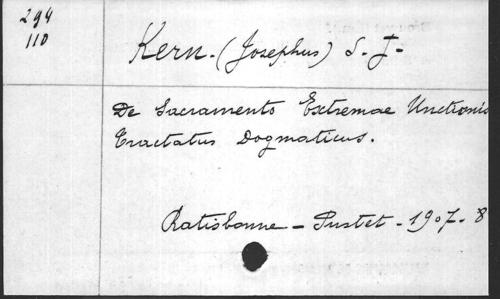 294
110
Kern. (Josephus) S. J.
De Sacramento Extremae Unctionis
Tractatus Dogmaticus.
Ratisbonne - Pustet - 1907. 8